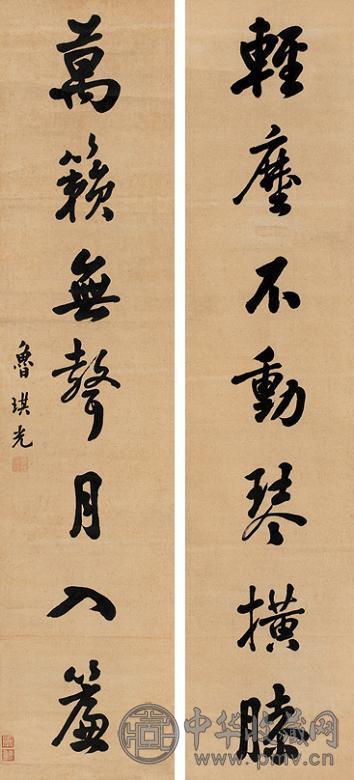 輕塵不動琴橫膝
萬籟無聲月入簾
魯琪光
中华收藏网
www.pmv.cn